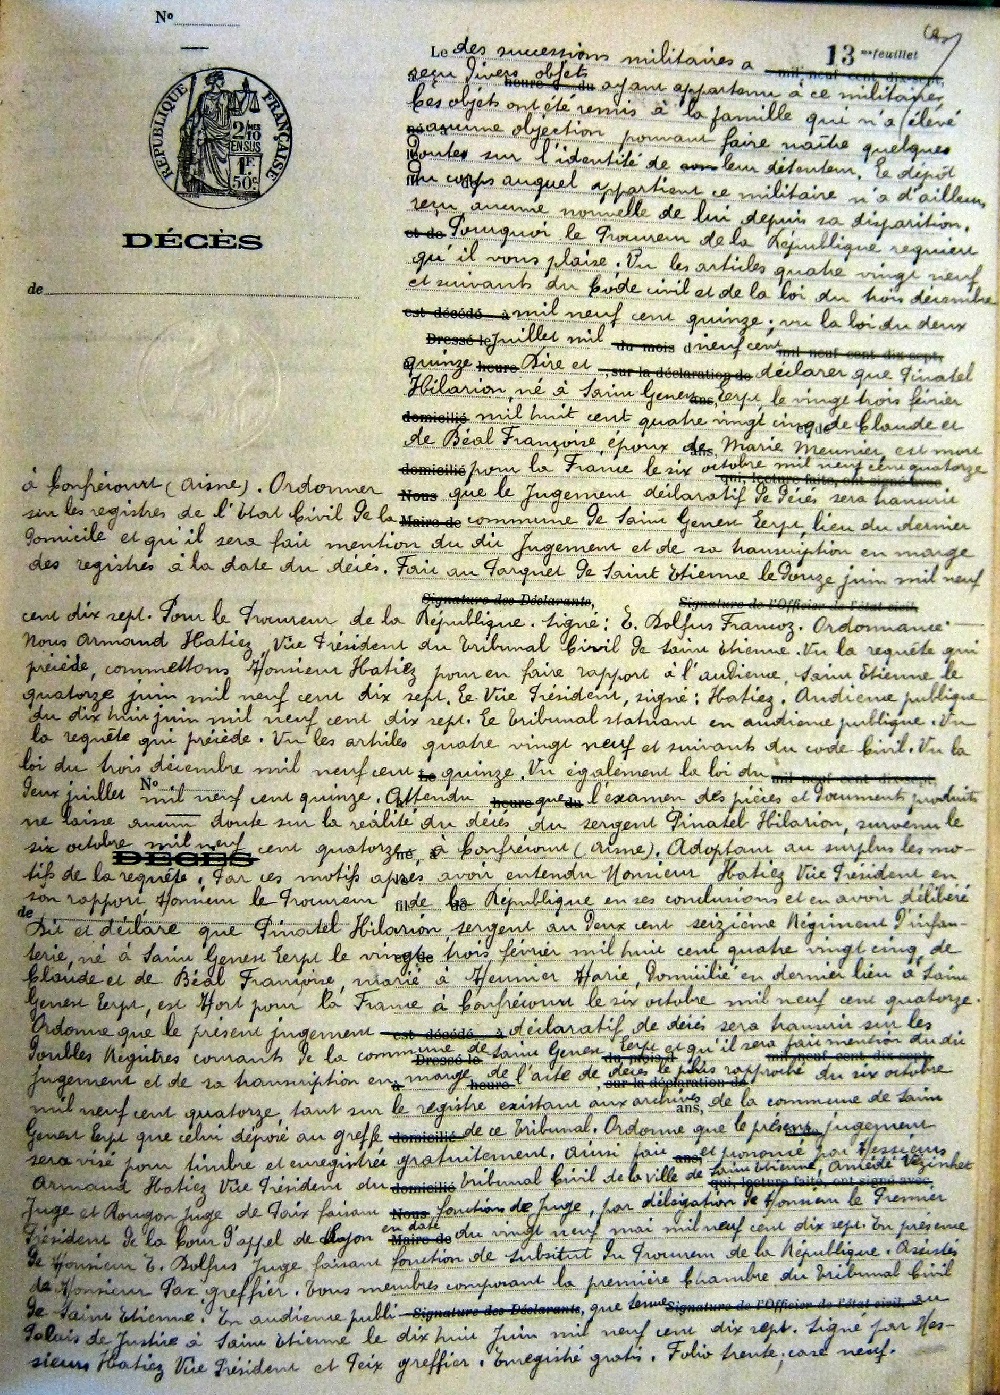 Nº
13 me feuillet
RÉPUBLIQUE FRANÇAISE
2/10 EN SUS
1F. 50c
DÉCÈS
de
Le des successions militaires a mil neuf cent dix-sept,
reçu divers objets heure du ayant appartenu à ce militaire,
Ces objets ont été remis à la famille qui n'a élevé
aucune objection pouvant faire naître quelques
doutes sur l'identité de leur détenteur. Le dépôt
du corps auquel appartient ce militaire n'a d'ailleurs
reçu aucune nouvelle de lui depuis sa disparition.
et de Pourquoi le Procureur de la République requiert
qu'il vous plaise. Vu les articles quatre vingt neuf
et suivants du Code civil et de la loi du trois décembre
est décédé à mil neuf cent quinze ; vu la loi du deux
Dressé le Juillet mil du mois d neuf cent mil neuf cent dix-sept,
quinze heure Dire et , sur la déclaration de déclarer que Pinatel
Hilarion, né à Saint Genest ans, Lerpt, le vingt trois février
domicilié mil huit cent quatre vingt cinq et de de Claude et
de Béal Françoise, époux de ans, Marie Meunier, est mort
domicilié pour la France le six octobre mil neuf cent quatorze
qui, lecture faite, ont signé avec
à Confrécourt (Aisne). Ordonner Nous que le Jugement déclaratif de décès sera transcrit
sur les registres de l'Etat Civil de la Maire de commune de Saint Genest Lerpt, lieu du dernier
domicile et qu'il sera fait mention du dit Jugement et de sa transcription en marge
des registres à la date du décès. Fait au Parquet de Saint Etienne le Douze juin mil neuf
Signature des Déclarants, Signature de l'Officier de l'état civil,
cent dix sept. Pour le Procureur de la République. Signé : E. Dolfus Francoz. Ordonnance
Nous Armand Hatiez, Vice Président du Tribunal Civil de Saint Etienne. Vu la requête qui
précède, commettons Monsieur Hatiez pour en faire rapport à l'audience. Saint Etienne le
quatorze juin mil neuf cent dix sept. Le Vice Président, signé : Hatiez. Audience publique
du dix huit juin mil neuf cent dix sept. Le Tribunal statuant en audience publique. Vu
la requête qui précède. Vu les articles quatre vingt neuf et suivants du code Civil. Vu la
loi du trois décembre mil neuf cent Le quinze. Vu également la loi du mil neuf cent dix-sept,
deux juillet Nº mil neuf cent quinze. Attendu heure que du l'examen des pièces et documents produits
ne laisse aucun doute sur la réalité du décès du sergent Pinatel Hilarion, survenu le
six octobre mil neuf DÉCÈS cent quatorze né, à à Confrécourt (Aisne). Adoptant au surplus les mo-
tifs de la requête. Par ces motifs après avoir entendu Monsieur Hatiez Vice Président en
son rapport, Monsieur le Procureur fil de la République en ses conclusions et en avoir délibéré
de Dit et déclare que Pinatel Hilarion, sergent au deux cent seizième Régiment d'infan-
terie, né à Saint Genest Lerpt le vingt et de trois février mil huit cent quatre vingt cinq, de
Claude et de Béal Françoise, marié à Meunier Marie, Domicilié en dernier lieu à Saint
Genest Lerpt, est Mort pour la France à Confrécourt le six octobre mil neuf cent quatorze.
Ordonne que le présent jugement est décédé à déclaratif de décès sera transcrit sur les
doubles Registres courants de la commune Dressé le de Saint Genest Lerpt du mois d et qu'il sera fait mention du dit mil neuf cent dix-sept,
Jugement et de sa transcription en à marge heure de l'acte de décès , sur la déclaration de le plus rapproché du six octobre
mil neuf cent quatorze, tant sur le registre existant aux archives ans, de la commune de Saint
Genest Lerpt que celui déposé au greffe domicilié de ce Tribunal. Ordonne que le présent jugement
sera visé pour timbre et enregistré gratuitement. Ainsi fait ans, et prononcé par Messieurs
Armand Hatiez Vice Président du domicilié Tribunal Civil de la ville de Saint Etienne, Amédé Vézinhet qui, lecture faite, ont signé avec,
Juge et Rougon Juge de Paix faisant Nous fonction de Juge, par délégation de Monsieur le Premier
Président de la Cour d'appel de Lyon en date Maire de du vingt neuf mai mil neuf cent dix sept. En présence
de Monsieur E. Dolfus Juge faisant fonction de Substitut du Procureur de la République. Assistés
de Monsieur Pax greffier. Tous membres composant la première Chambre du Tribunal Civil
de Saint Etienne. En audience publi- Signature des Déclarants, que tenue Signature de l'Officier de l'état civil, au
Palais de Justice à Saint Etienne le dix huit Juin mil neuf cent dix sept. Signé par Mes-
sieurs Hatiez Vice Président et Peix greffier. Enregistré gratis. Folio trente, case neuf.